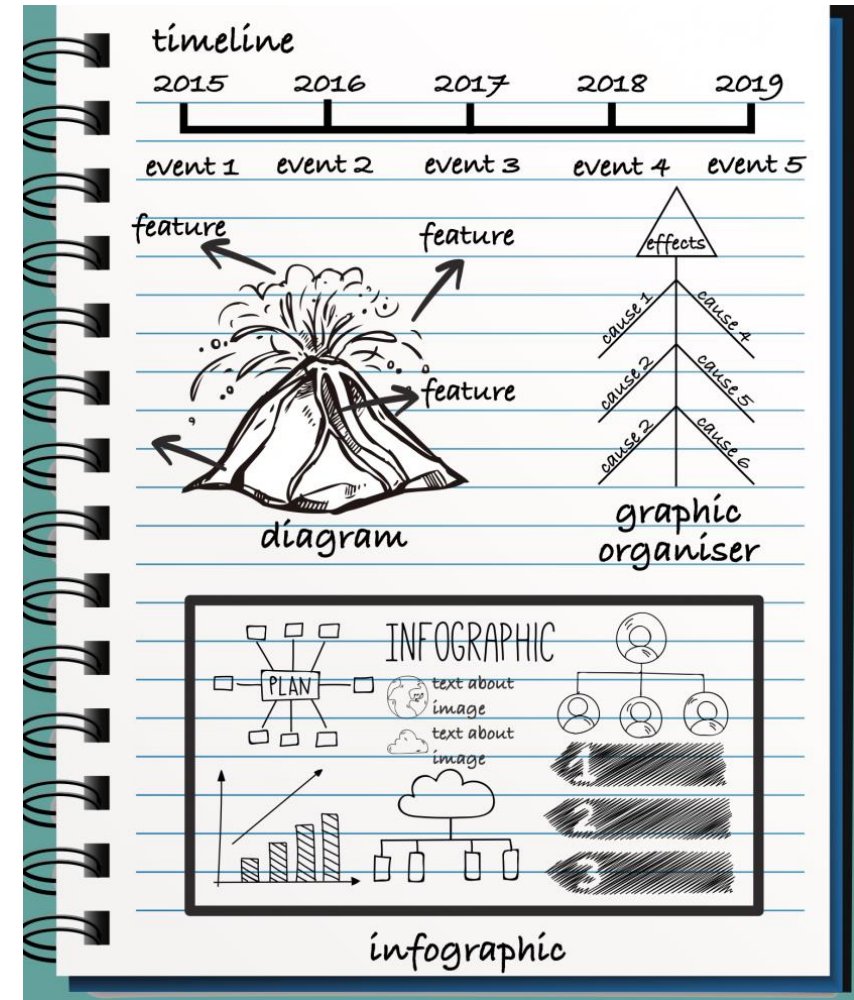 timeline
2015 2016 2017 2018 2019
event 1 event 2 event 3 event 4 event 5
feature
feature
feature
diagram
effects
cause 1
cause 4
cause 2
cause 5
cause 2
cause 6
graphic
organiser
PLAN
INFOGRAPHIC
text about
image
text about
image
1
2
3
infographic